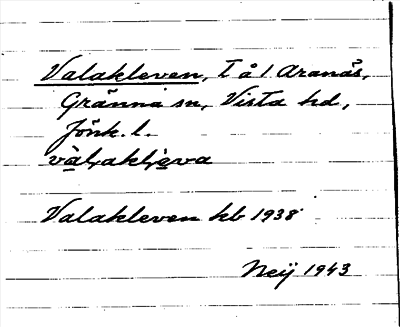 Valakleven, t å 1 Aranäs,
Gränna sn, Vista hd,
Jönk. l.
Valakleven kb 1938
Neij 1943